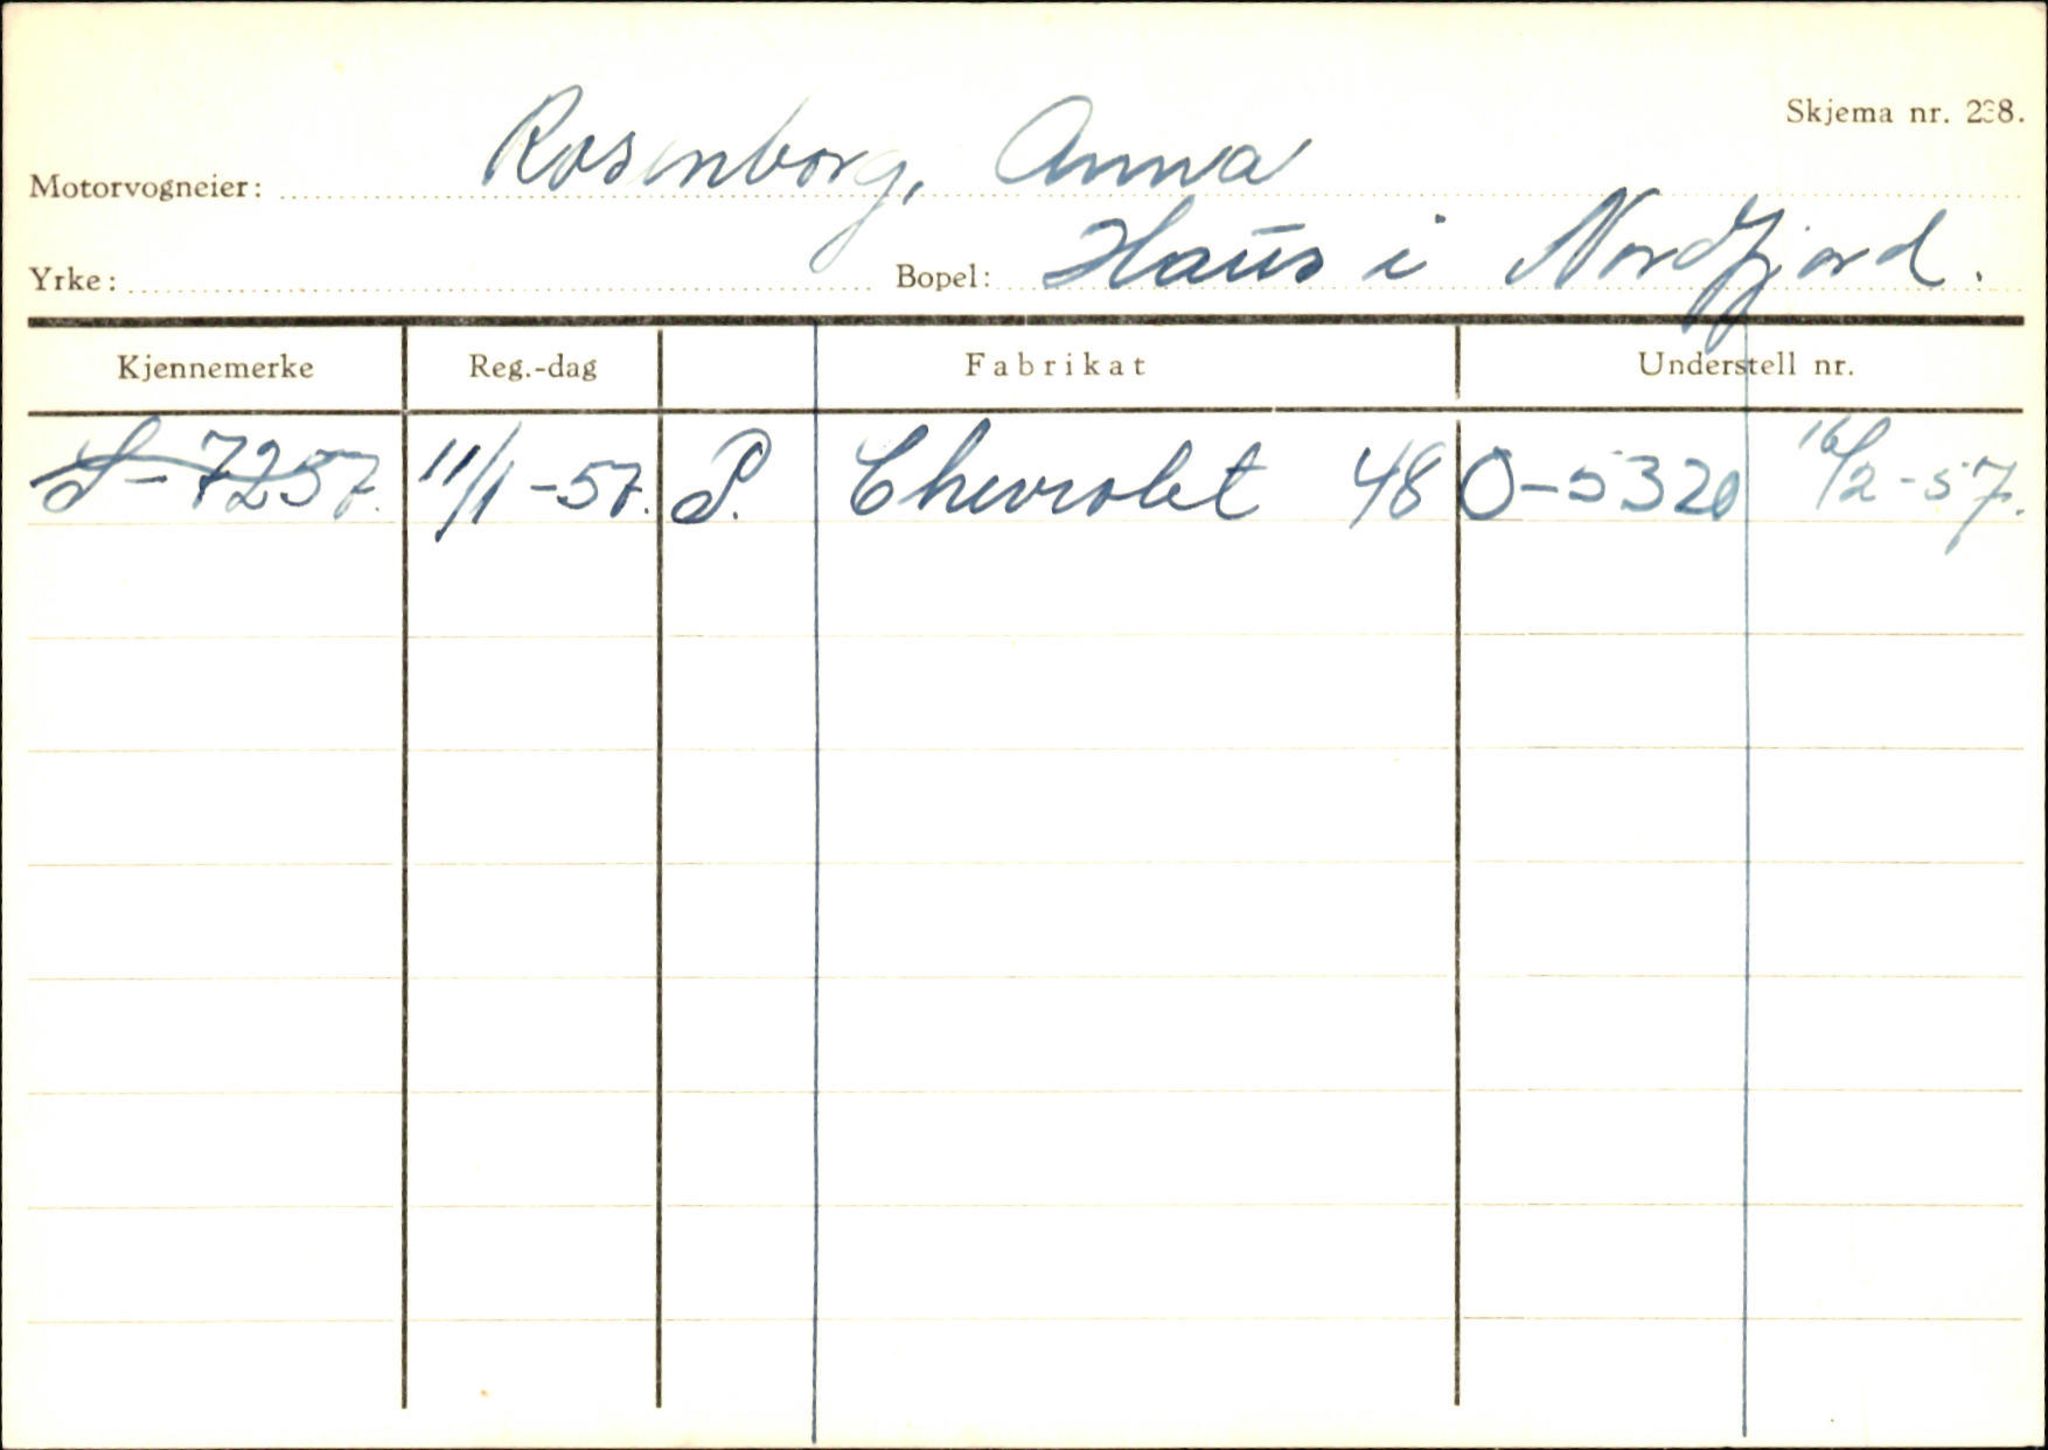 Skjema nr. 238.
Motorvogneier: Rosenborg, Anna
Yrke: Bopel: Haus i Nordfjord.
Kjennemerke Reg.-dag Fabrikat Understell nr.
S-7257. 11/1-57. P. Chevrolet 48 O-5320 16/2-57.